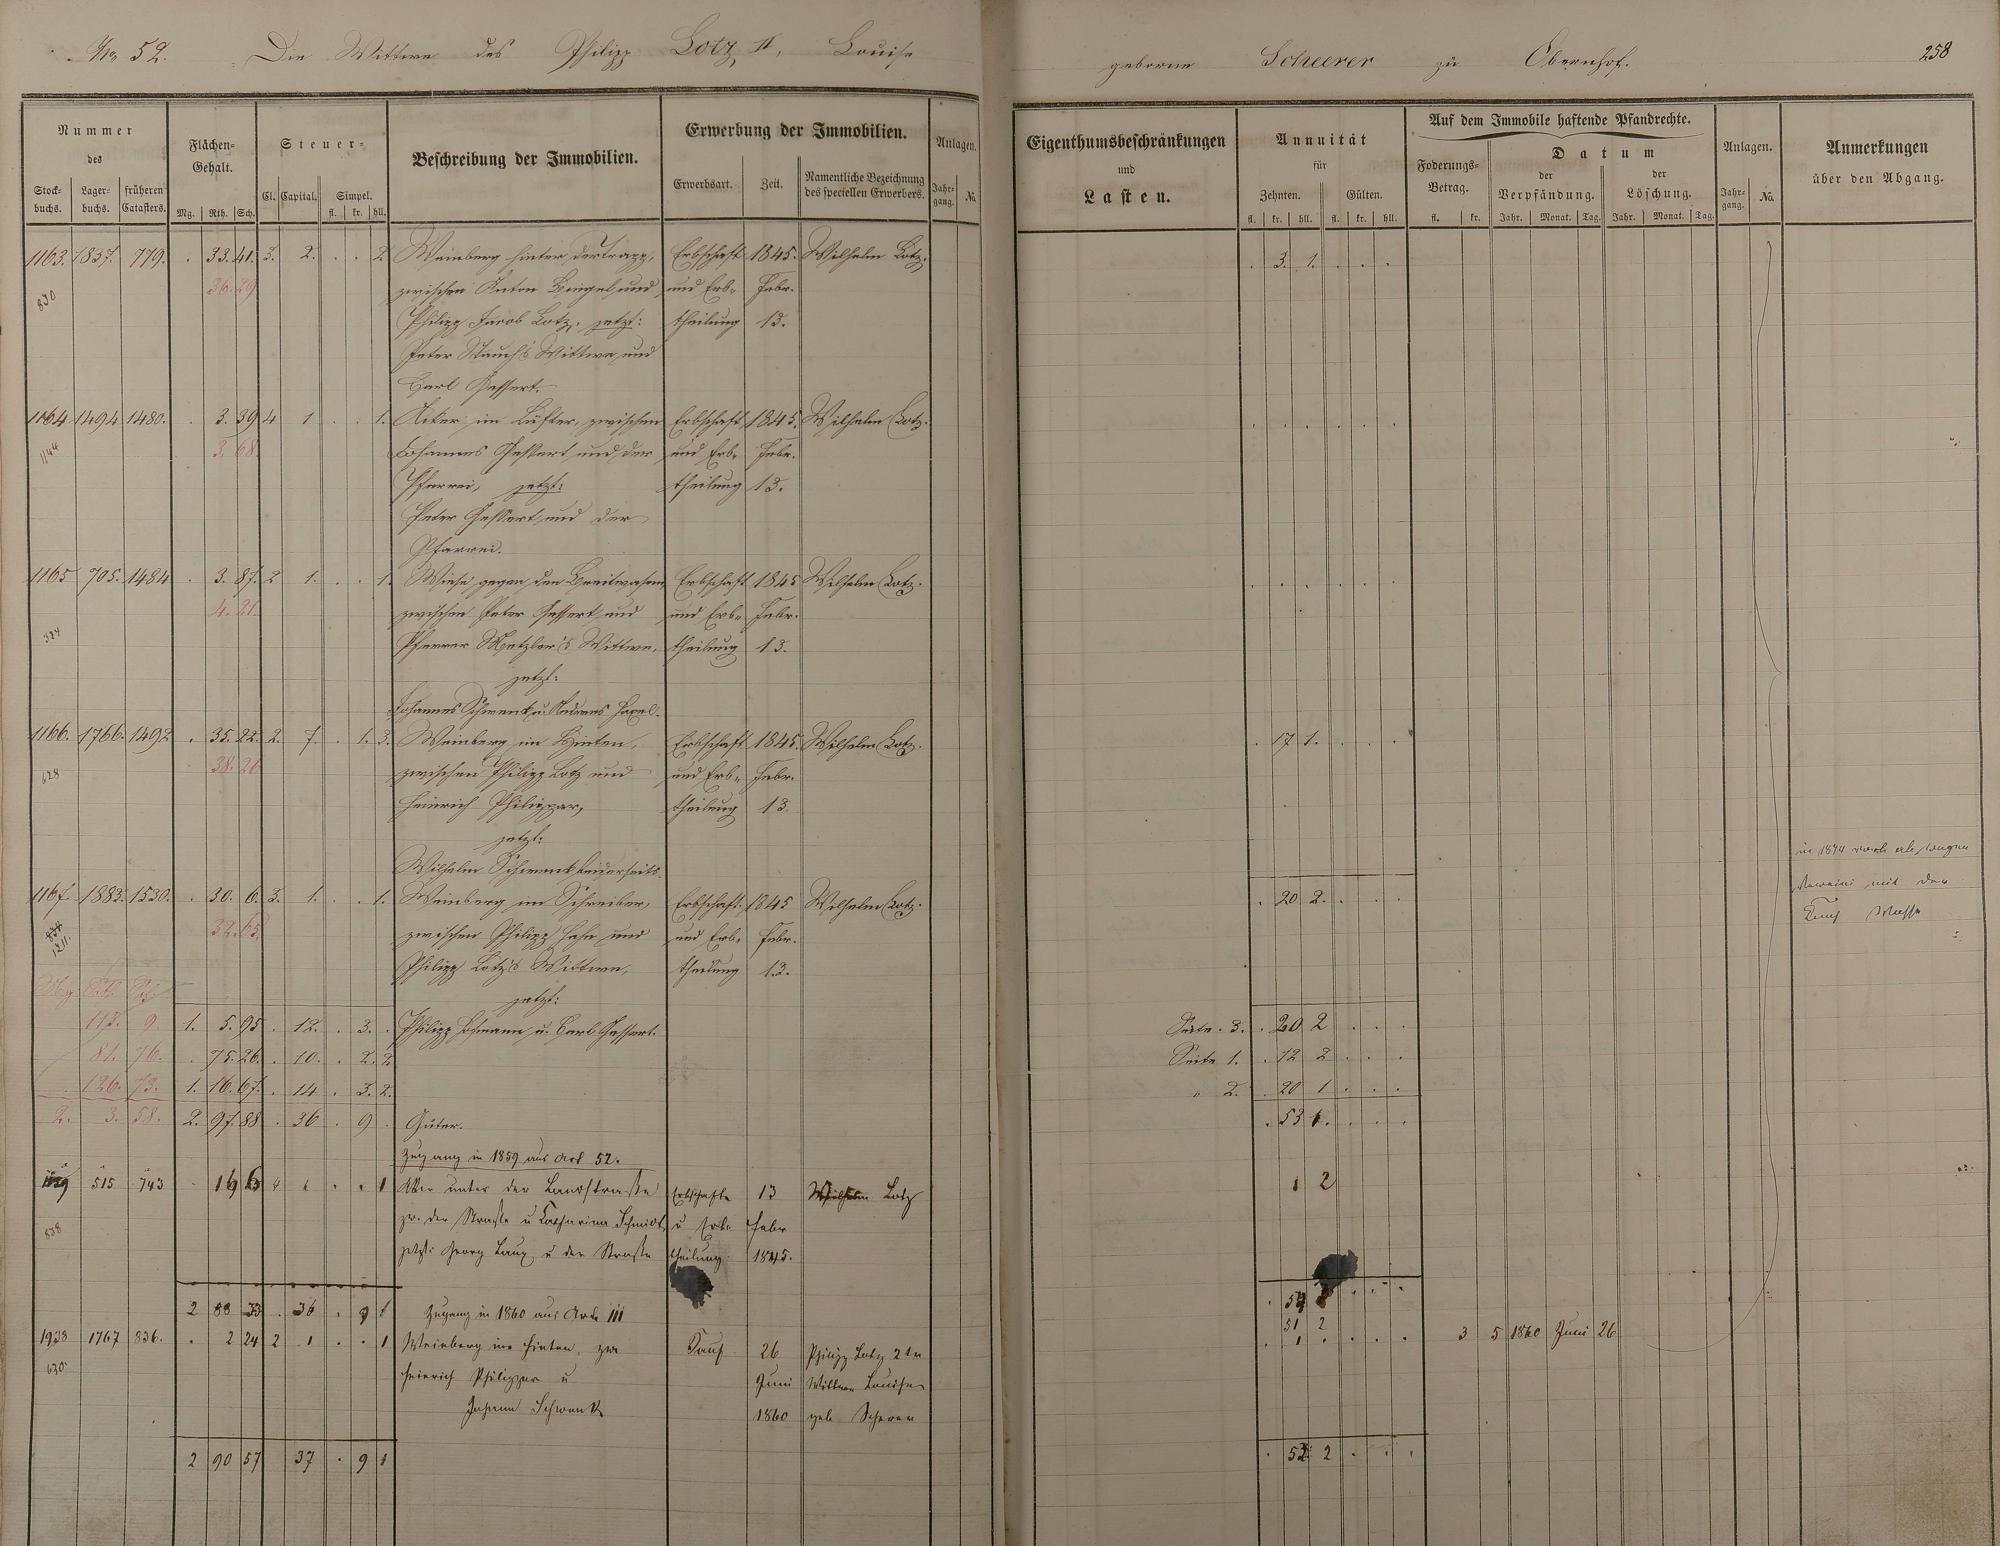 No 52. Die Wittwe des Philipp Lotz II, Louise geborne Scheerer zu Obernhof. 258
Nummer des
Stock-buchs. Lager-buchs. früheren Catasters.
Flächen-Gehalt.
Mg. Rth. Sch.
Steuer-
Cl. Capital. Simpel.
fl. kr. hll.
Beschreibung der Immobilien.
Erwerbung der Immobilien.
Erwerbsart. Zeit. Namentliche Bezeichnung des speciellen Erwerbers.
Anlagen.
Jahr-gang. No.
Eigenthumsbeschränkungen und Lasten.
Annuität für
Zehnten. Gülten.
fl. kr. hll. fl. kr. hll.
Auf dem Immobile haftende Pfandrechte.
Foderungs-Betrag.
fl. kr.
Datum
der Verpfändung. der Löschung.
Jahr. Monat. Tag. Jahr. Monat. Tag.
Anlagen.
Jahr-gang. No.
Anmerkungen über den Abgang.
1163. 1837. 779. . 33. 41. 3. 2. . . 2 Weinberg hinter der Trapp, Erbschaft 1845. Wilhelm Lotz. . 3. 1. . . .
830 36. 29 zwischen Anton Bengel und und Erb- Febr.
Philipp Jacob Lotz, jetzt: theilung 13.
Peter Stauch's Wittwe und
Carl Gessert.
1164 1494 1480. . 3. 39 4 1 . . 1. Acker im Lüster, zwischen Erbschaft 1845. Wilhelm Lotz.
1144 3. 68. Johannes Gessert und der und Erb- Febr.
Pfarrei, jetzt: theilung 13.
Peter Gessert und der
Pfarrei.
1165 705. 1484 . 3. 87. 2 1. . . 1. Wiese gegen den Breitwasem, Erbschaft 1845 Wilhelm Lotz.
324 4. 21. zwischen Peter Gessert und und Erb- Febr.
Pfarrer Metzler's Wittwe, theilung 13.
jetzt:
Johannes Schwenk u. Andreas
1166. 1766. 1492 . 35. 22. 2. 7. . 1. 3. Weinberg im Hinten, Erbschaft 1845. Wilhelm Lotz. . 17 1. . . .
628 38. 26 zwischen Philipp Lotz und und Erb- Febr.
Heinrich Philippar, theilung 13.
jetzt:
Wilhelm Schwenk beiderseits.
in 1874
1167. 1883. 1530. . 30. 6. 3. 1. . . 1. Weinberg im Schreiber, Erbschaft 1845 Wilhelm Lotz. . 20 2. . . . mit der
1211. 32. 65. zwischen Philipp Hahn und und Erb- Febr. Masse
Philipp Lotz's Wittwe, theilung 13.
Mg. Rth. Sch. jetzt:
113. 9. 1. 5. 95 . 12. . 3. . Philipp Hofmann u. Carl Gessert. Seite 3. . 20 2 . . .
81. 76. . 75. 26. . 10. . 2. 2. Seite 1. . 12 2 . . .
126. 73. 1. 16. 67. . 14 . 3. 2. " 2. . 20 1 . . .
2. 3. 58. 2. 97. 88 . 36 . 9 . Güter. . 53 1. . . .
Zugang in 1859 aus Art 52.
515 743 4 1 Acker unter der Landstraße Erbschaft 13 Wilhelm Lotz 1 2
838 zw. der Straße u Catharina Schmidt, u Erb- Febr
jetzt: Georg Laux u der Straße theilung 1845.
2 88 33 . 36 . 9 1 Zugang in 1860 aus Art. 111
51 2
1938 1767 836. . 2 24 2 1 . . 1 Weinberg im Hinten, zw Tausch 26 Philipp Lotz 2ten . 1 . . . . 3 5 1860 Juni 26
630. Heinrich Philippar u Juni Wittwe Louise
Johann Schwenk 1860 geb Scherer
2 90 57 37 . 9 1 . 52 2 . . .